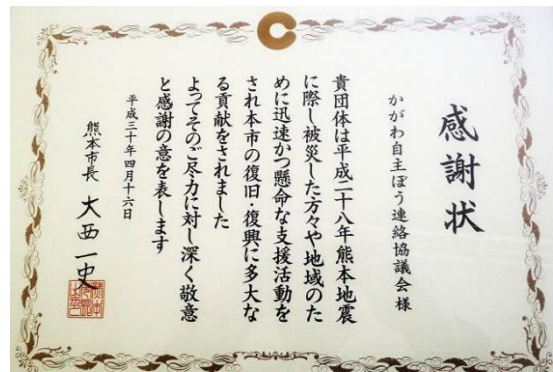 感謝状
かがわ自主ぼう連絡協議会様
貴団体は平成二十八年熊本地震
に際し被災した方々や地域のた
めに迅速かつ懸命な支援活動を
され本市の復旧・復興に多大な
る貢献をされました
よってそのご尽力に対し深く敬意
と感謝の意を表します
平成三十年四月十六日
熊本市長 大西一史